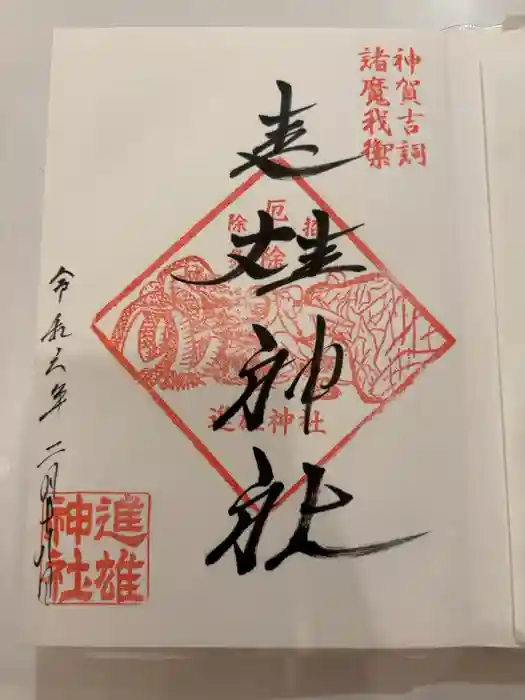 神賀吉詞
諸魔我禦
進雄神社
厄
除
除
招
進雄神社
令和六年二月
進雄
神社